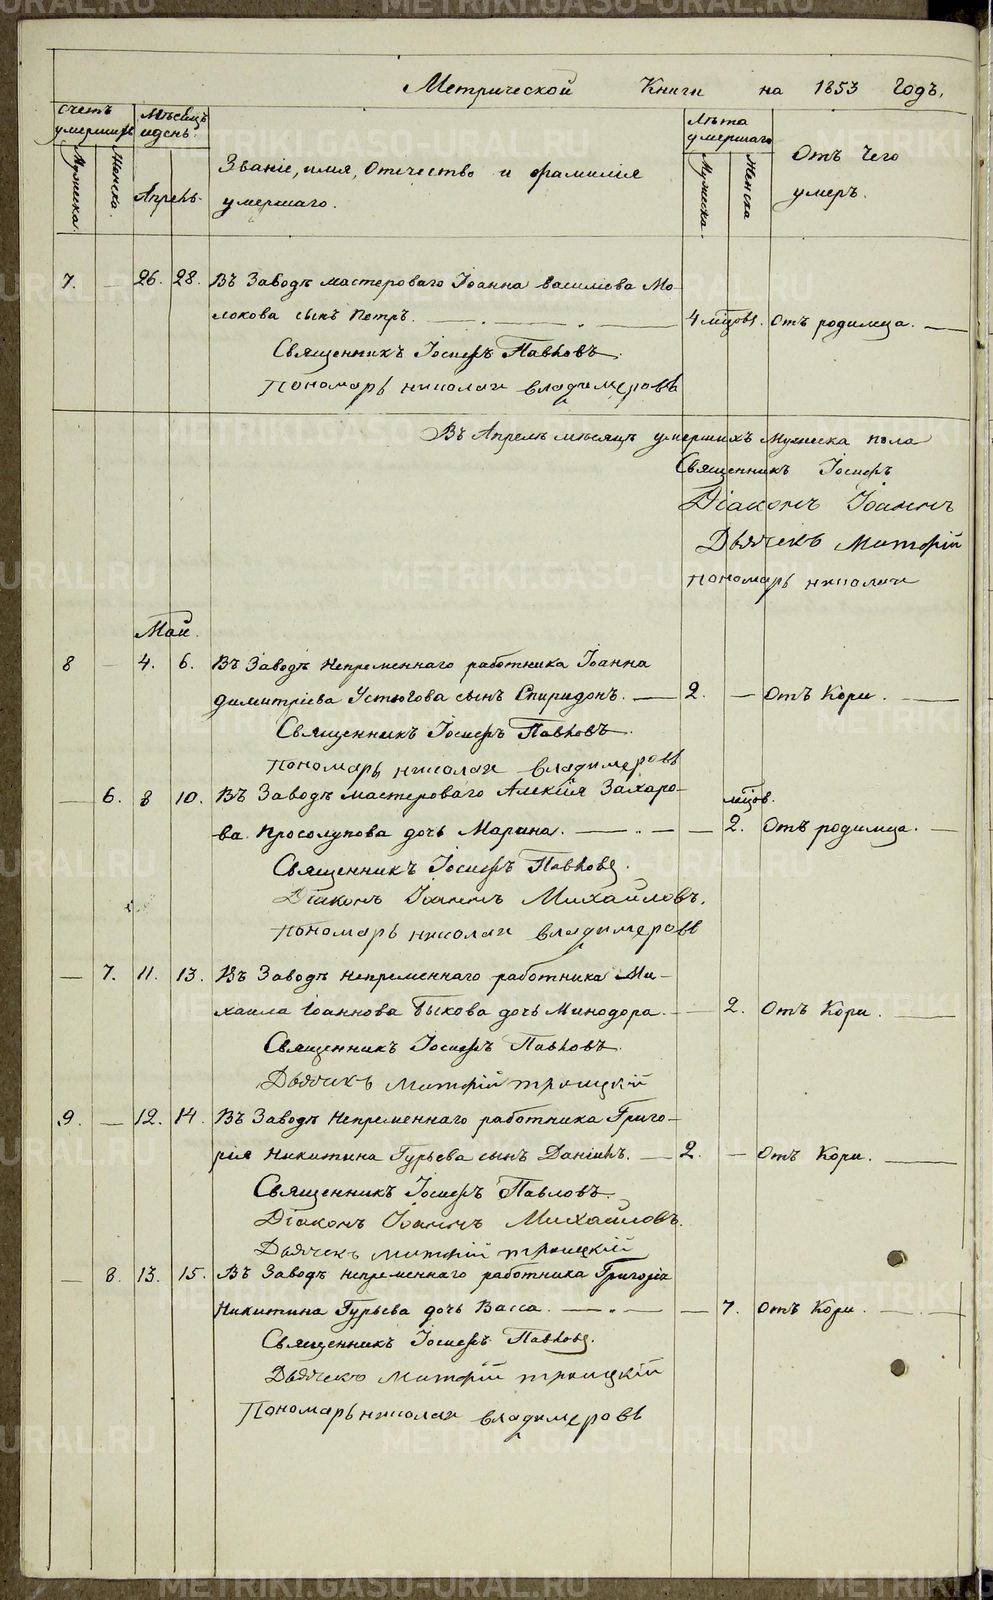 Метрической Книги на 1853 Годъ,
Счетъ умершихъ
Мѣсяцъ и день.
Лѣта умершаго
Мужеска.
Женска.
Апрель.
Званіе, имя, Отчество и фамилія
умершаго.
Мужеска.
Женска
Отъ Чего
умеръ.
7. — 26. 28. Въ Заводѣ мастероваго Іоанна василіева Мо-
локова сынъ Петръ. — 4 мѣцовъ. Отъ родимца. —
Священникъ Іосифъ Павловъ.
Пономарь николаи владимеровъ
Въ Апрелѣ мѣсяцѣ умершихъ Мужеска пола
Священникъ Іосифъ
Діаконъ Іоаннъ
Дьячекъ Митрофій
пономарь николаи
Май.
8 — 4. 6. Въ Заводѣ Непременнаго работника Іоанна
димитріева Устюгова сынъ Спиридонъ. — 2. — Отъ Кори. —
Священникъ Іосифъ Павловъ.
пономарь николаи владимеровъ
— 6. 8 10. Въ Заводѣ мастероваго Алексія Захаро-
мѣцов.
ва Просолупова дочь Марина. — . — — 2. Отъ родимца. —
Священникъ Іосифъ Павловъ.
Діаконъ Іоаннъ Михайловъ.
пономарь николаи владимеровъ
— 7. 11. 13. Въ Заводѣ непременнаго работника Ми-
хаила Іоаннова Быкова дочь Минодора. — 2. Отъ Кори. —
Священникъ Іосифъ Павловъ.
Дьячекъ троицкій
9. — 12. 14. Въ Заводѣ Непременнаго работника Григо-
рія Никитина Гурьева сынъ Даніилъ. — 2. — Отъ Кори. —
Священникъ Іосифъ Павловъ.
Діаконъ Іоаннъ Михайловъ.
Дьячекъ троицкій
— 8. 13. 15. Въ Заводѣ непременнаго работника Григорія
Никитина Гурьева дочь Васса. — „ — — 7. Отъ Кори. —
Священникъ Іосифъ Павловъ.
Дьячекъ троицкій
Пономарь николаи владимеровъ
METRIKI.GASO-URAL.RU